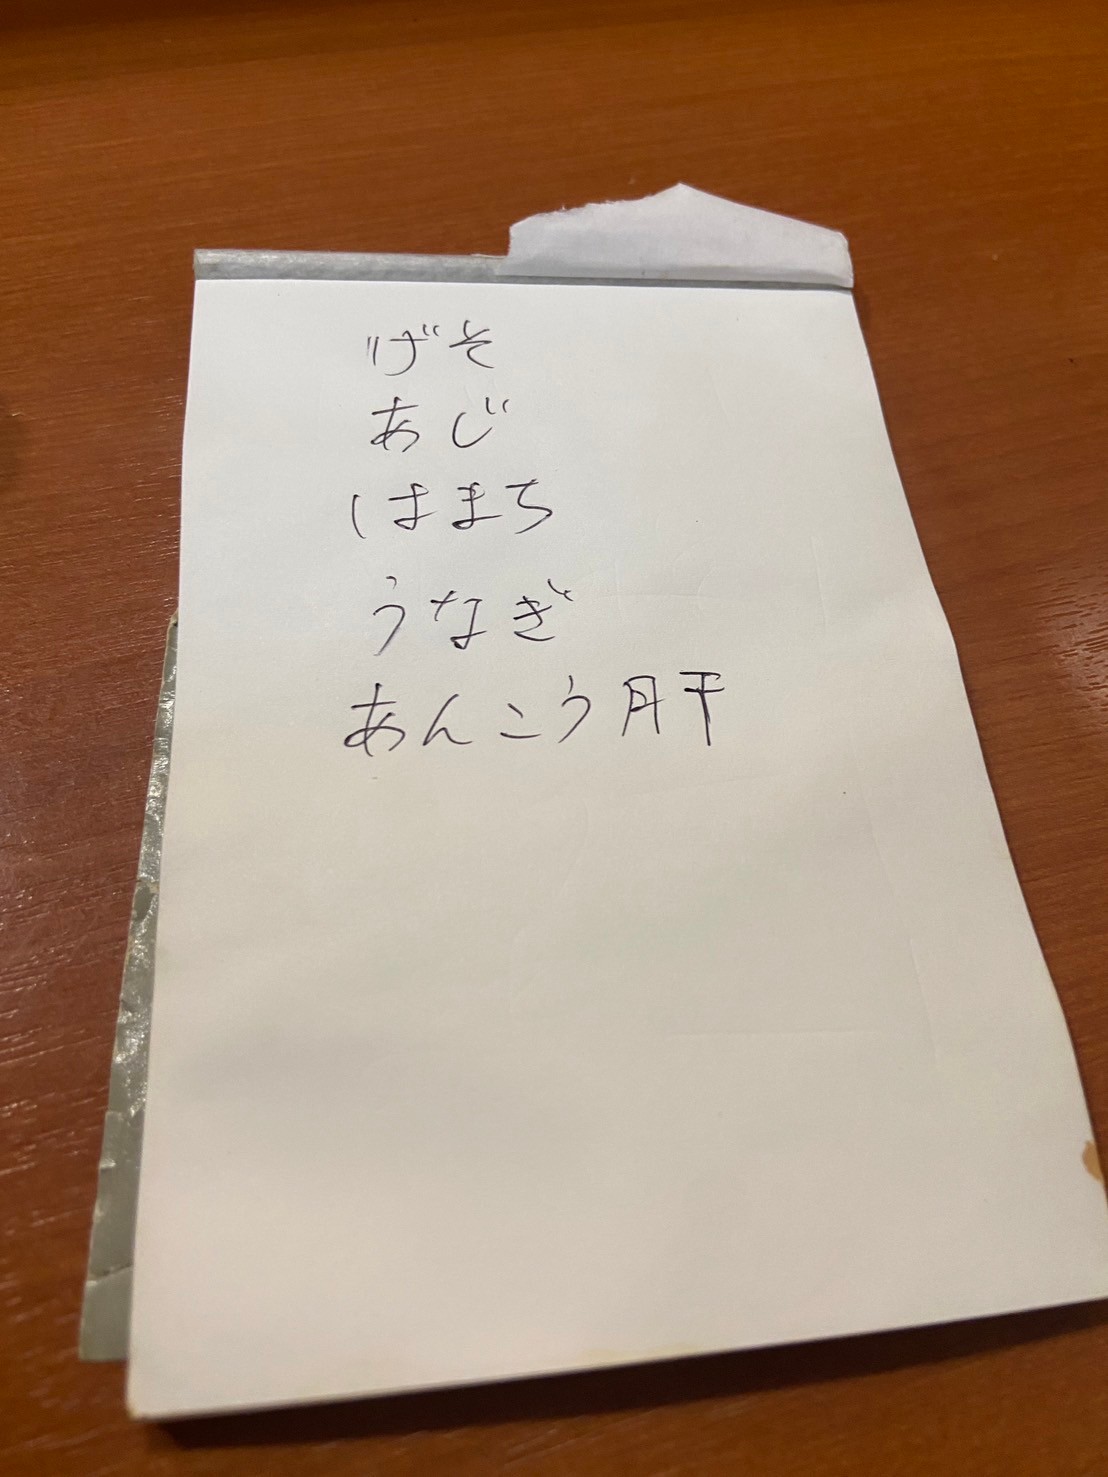 げそ
あじ
はまち
うなぎ
あんこう肝